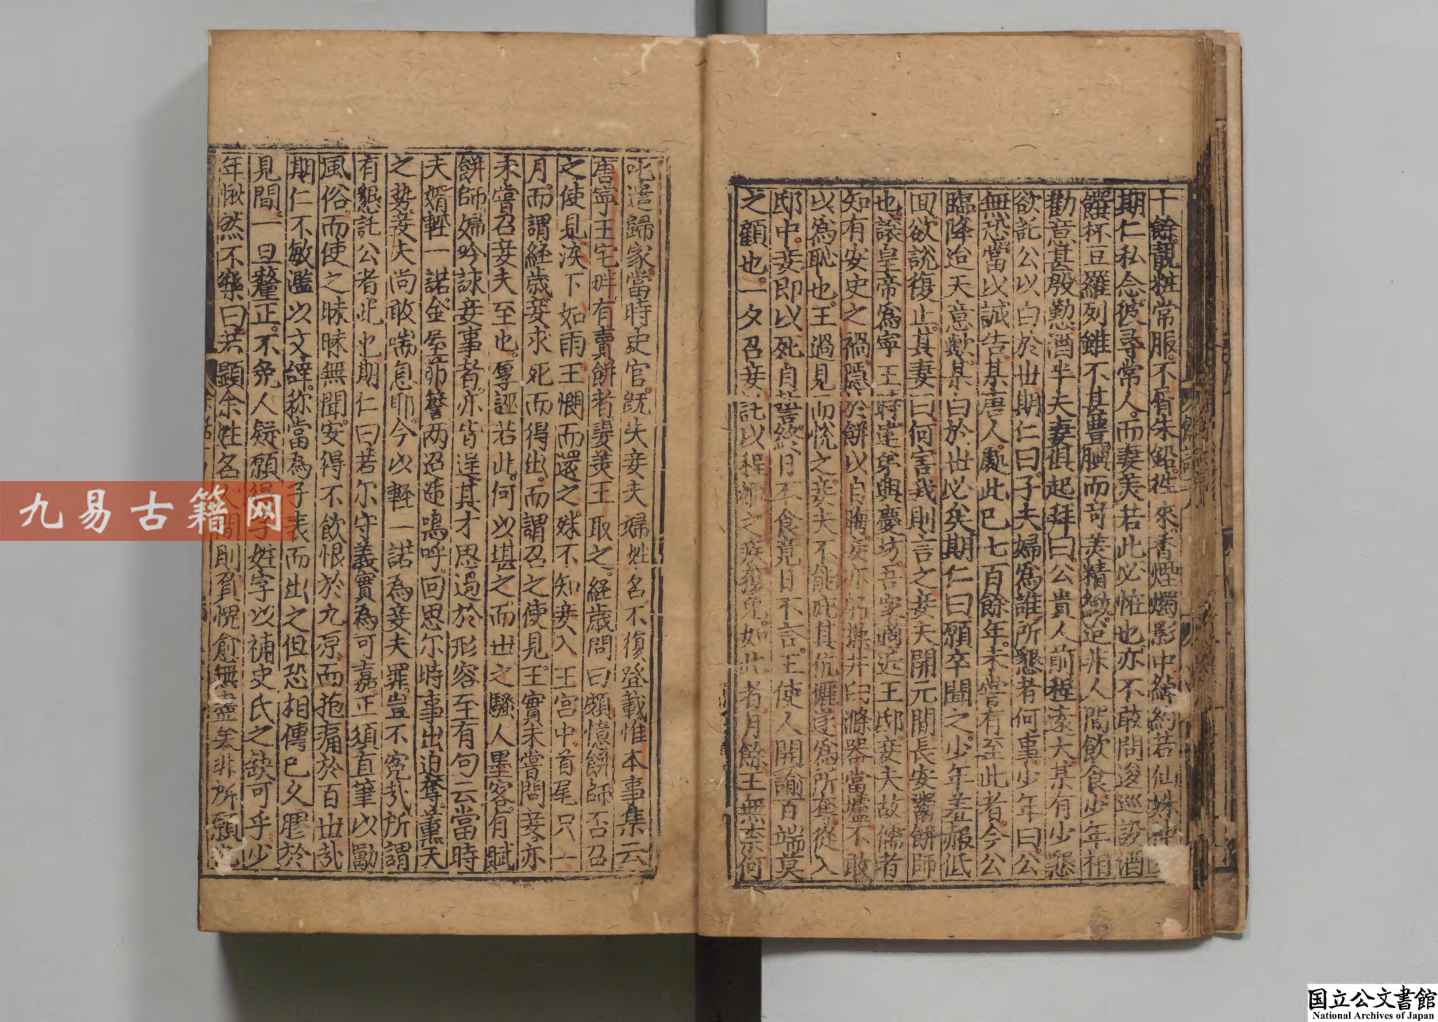 十餘靚粧常服不屑朱鉛往來香煙燭影中綽約若仙姝神
期仁私念彼尋常人而妻美若此必怪也亦不敢問逡巡設酒
饌杯豆羅列雖不甚豊腆而奇美精緻迨非人間飲食少年相
勸意甚殷懃酒半夫妻俱起拜曰公貴人前程索大某有少懇
欲託公以白於世期仁曰子夫婦為誰所懇者何事少年曰公
無恐當以誠告某唐人處此已七百餘年未甞有至此者今公
臨降迨天意歟某白於世必矣期仁曰願卒聞之少年羞赧低
回欲說復止其妻曰何害我則言之妾夫開元間長安鬻餅師
也讓皇帝為寧王時建第興慶坊吾家適近王邸妾夫故儒者
知有安史之禍隱於餅以自晦妾亦躬操井臼滌器當壚不敢
以為恥也王過見而悅之妾夫不能庇其伉儷遂為所奪從入
邸中妾即以死自誓終日不食竟日不言王使人開諭百端莫
之顧也一夕召妾託以程姬之疾獲免如此者月餘王無奈何
叱遣歸家當時史官既失妾夫婦姓名不復登載惟本事集云
唐寧王宅畔有賣餅者妻美王取之経歲問曰頗憶餅師否召
之使見淚下如雨王憫而還之殊不知妾入王宮中首尾只一
月而謂経歲妾求死而得出而謂召之使見王實未嘗問妾亦
未嘗召妾夫至也厚誣若此何以堪之而世之騷人墨客有賦
餅師婦吟詠妾事者亦皆逞其才思過於形容至有句云當時
夫婿輕一諾金屋茆簷兩迢遞嗚呼回思尔時事出迫奪薰天
之勢妾夫尚敢喘息耶今以輕一諾為妾夫罪豈不冤哉所謂
有懇託公者此也期仁曰若尔守義實為可嘉正須直筆以勵
風俗而使之昧昧無聞安得不飲恨於九原而抱痛於百世哉
期仁不敏濫以文辭稱當為子表而出之但恐相傳已久膠於
見聞一旦釐正不免人疑願得子姓字以補史氏之缺可乎少
年愀然不樂曰若顯余姓名人間則吾愧愈無盡矣非所願也
九易古籍网
国立公文書館
National Archives of Japan